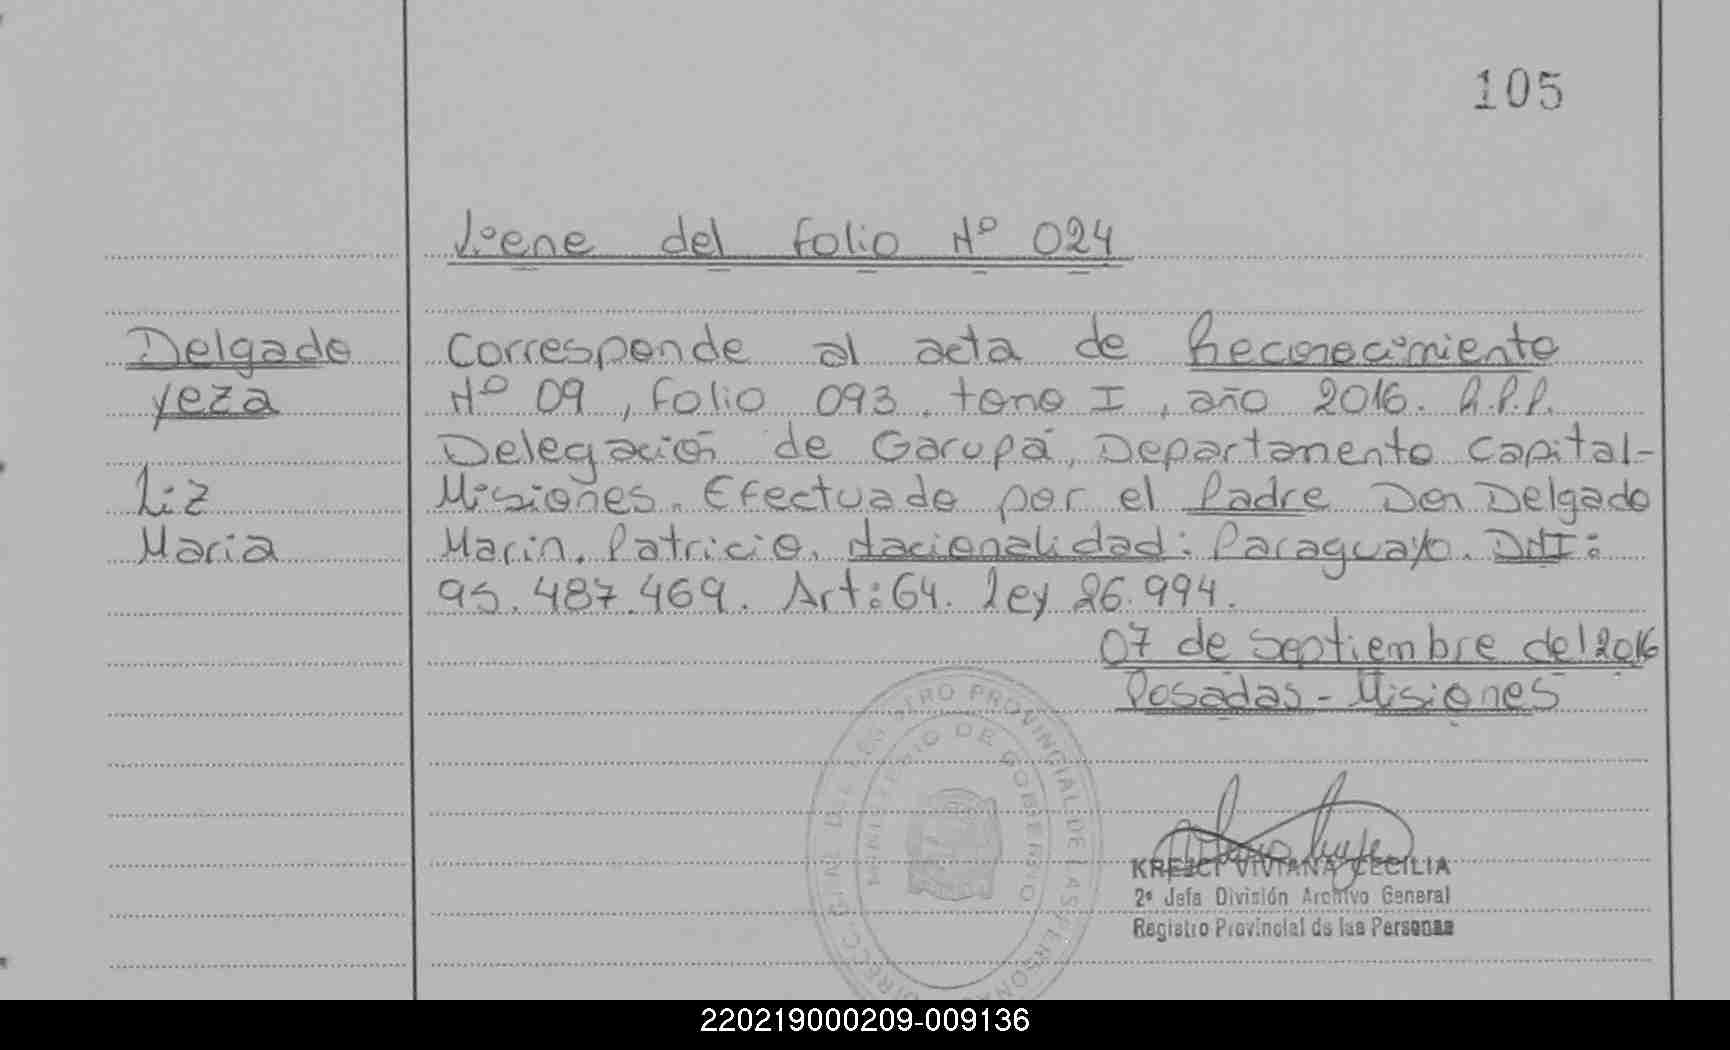 105
Viene del folio Nº 024
Delgado
Yeza
Liz
Maria
Corresponde al acta de Reconocimiento
Nº 09, folio 093. tomo I, año 2016. R.P.P.
Delegación de Garupá, Departamento Capital-
Misiones. Efectuado por el Padre Don Delgado
Marin. Patricio. Nacionalidad: Paraguayo. DNI:
95.487.469. Art: 64. Ley 26.994.
07 de Septiembre del 2016
Posadas - Misiones
REGISTRO PROVINCIAL DE LAS PERSONAS
MINISTERIO DE GOBIERNO
KREJCI VIVIANA CECILIA
2º Jefa División Archivo General
Registro Provincial de las Personas
220219000209-009136